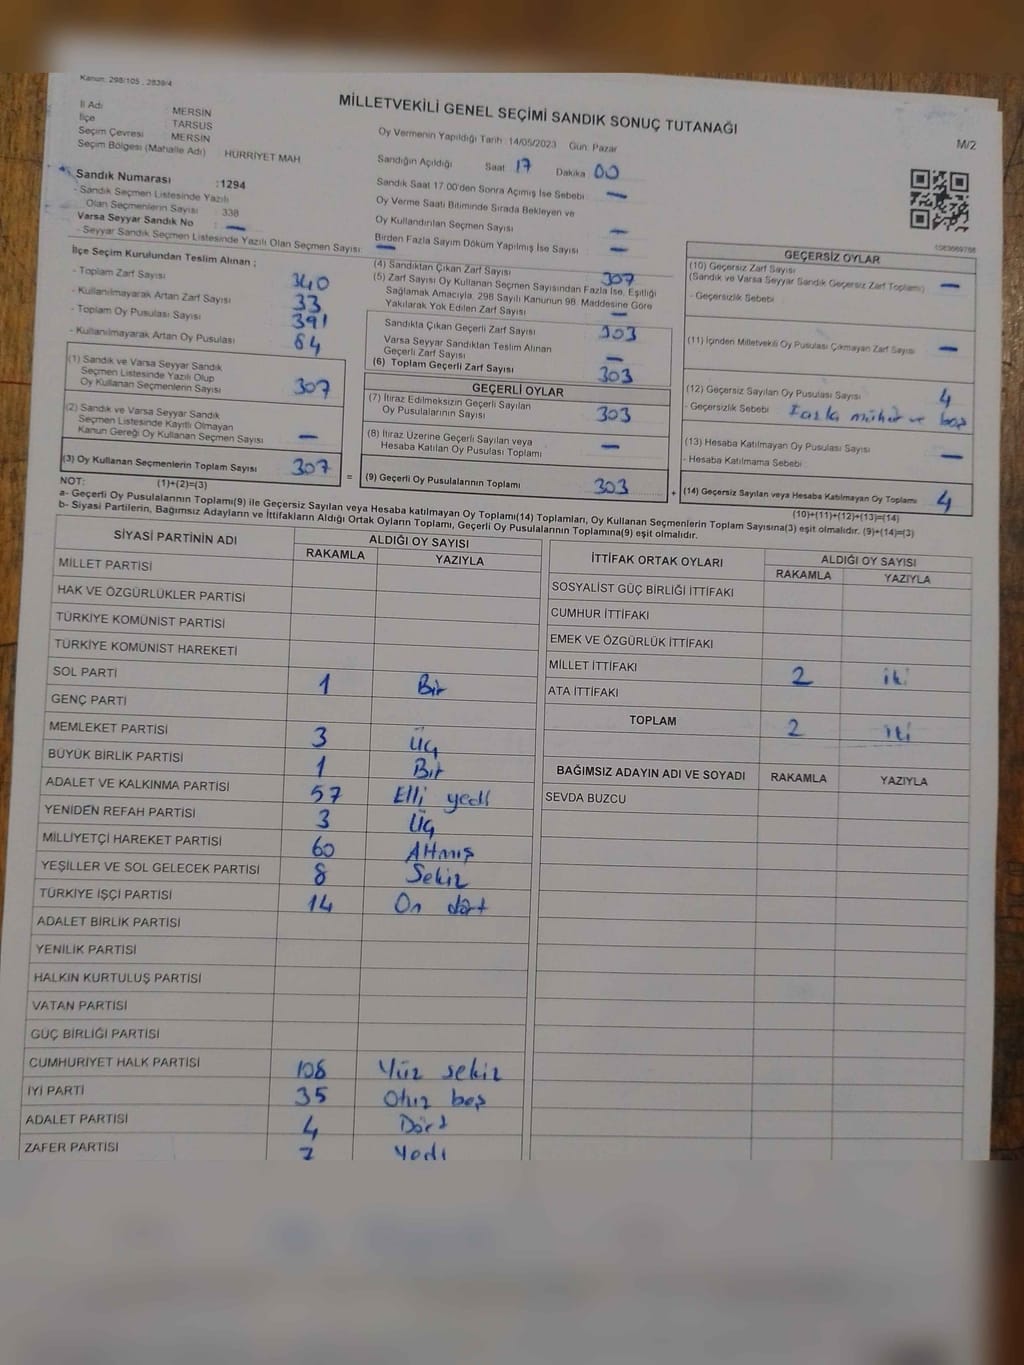 Kanun: 298/105 , 2839/4
MİLLETVEKİLİ GENEL SEÇİMİ SANDIK SONUÇ TUTANAĞI
M/2
İl Adı MERSİN
İlçe TARSUS
Seçim Çevresi MERSİN
Seçim Bölgesi (Mahalle Adı) HÜRRİYET MAH
Sandık Numarası :1294
- Sandık Seçmen Listesinde Yazılı
Olan Seçmenlerin Sayısı : 338
Varsa Seyyar Sandık No : —
- Seyyar Sandık Seçmen Listesinde Yazılı Olan Seçmen Sayısı: —
Oy Vermenin Yapıldığı Tarih :14/05/2023 Gün: Pazar
Sandığın Açıldığı Saat 17 Dakika 00
Sandık Saat 17.00'den Sonra Açımış İse Sebebi —
Oy Verme Saati Bitiminde Sırada Bekleyen ve
Oy Kullandırılan Seçmen Sayısı —
Birden Fazla Sayım Döküm Yapılmış İse Sayısı —
İlçe Seçim Kurulundan Teslim Alınan ;
- Toplam Zarf Sayısı 340
- Kullanılmayarak Artan Zarf Sayısı 33
- Toplam Oy Pusulası Sayısı 391
- Kullanılmayarak Artan Oy Pusulası 84
(1) Sandık ve Varsa Seyyar Sandık
Seçmen Listesinde Yazılı Olup
Oy Kullanan Seçmenlerin Sayısı 307
(2) Sandık ve Varsa Seyyar Sandık
Seçmen Listesinde Kayıtlı Olmayan
Kanun Gereği Oy Kullanan Seçmen Sayısı —
(3) Oy Kullanan Seçmenlerin Toplam Sayısı 307
(1)+(2)=(3)
=
(4) Sandıktan Çıkan Zarf Sayısı 307
(5) Zarf Sayısı Oy Kullanan Seçmen Sayısından Fazla İse, Eşitliği
Sağlamak Amacıyla, 298 Sayılı Kanunun 98. Maddesine Göre
Yakılarak Yok Edilen Zarf Sayısı —
Sandıkta Çıkan Geçerli Zarf Sayısı 303
Varsa Seyyar Sandıktan Teslim Alınan
Geçerli Zarf Sayısı —
(6) Toplam Geçerli Zarf Sayısı 303
GEÇERLİ OYLAR
(7) İtiraz Edilmeksizin Geçerli Sayılan
Oy Pusulalarının Sayısı 303
(8) İtiraz Üzerine Geçerli Sayılan veya
Hesaba Katılan Oy Pusulası Toplamı —
(9) Geçerli Oy Pusulalarının Toplamı 303
+
1583669766
GEÇERSİZ OYLAR
(10) Geçersiz Zarf Sayısı
(Sandık ve Varsa Seyyar Sandık Geçersiz Zarf Toplamı) —
- Geçersizlik Sebebi
(11) İçinden Milletvekili Oy Pusulası Çıkmayan Zarf Sayısı —
(12) Geçersiz Sayılan Oy Pusulası Sayısı 4
- Geçersizlik Sebebi Fazla mühür ve boş
(13) Hesaba Katılmayan Oy Pusulası Sayısı —
- Hesaba Katılmama Sebebi
(14) Geçersiz Sayılan veya Hesaba Katılmayan Oy Toplamı 4
(10)+(11)+(12)+(13)=(14)
NOT:
a- Geçerli Oy Pusulalarının Toplamı(9) ile Geçersiz Sayılan veya Hesaba katılmayan Oy Toplamı(14) Toplamları, Oy Kullanan Seçmenlerin Toplam Sayısına(3) eşit olmalıdır. (9)+(14)=(3)
b- Siyasi Partilerin, Bağımsız Adayların ve İttifakların Aldığı Ortak Oyların Toplamı, Geçerli Oy Pusulalarının Toplamına(9) eşit olmalıdır.
SİYASİ PARTİNİN ADI ALDIĞI OY SAYISI
RAKAMLA YAZIYLA
MİLLET PARTİSİ
HAK VE ÖZGÜRLÜKLER PARTİSİ
TÜRKİYE KOMÜNİST PARTİSİ
TÜRKİYE KOMÜNİST HAREKETİ
SOL PARTİ 1 Bir
GENÇ PARTİ
MEMLEKET PARTİSİ 3 Üç
BÜYÜK BİRLİK PARTİSİ 1 Bir
ADALET VE KALKINMA PARTİSİ 57 Elli yedi
YENİDEN REFAH PARTİSİ 3 Üç
MİLLİYETÇİ HAREKET PARTİSİ 60 Altmış
YEŞİLLER VE SOL GELECEK PARTİSİ 8 Sekiz
TÜRKİYE İŞÇİ PARTİSİ 14 On dört
ADALET BİRLİK PARTİSİ
YENİLİK PARTİSİ
HALKIN KURTULUŞ PARTİSİ
VATAN PARTİSİ
GÜÇ BİRLİĞİ PARTİSİ
CUMHURİYET HALK PARTİSİ 108 Yüz sekiz
İYİ PARTİ 35 Otuz beş
ADALET PARTİSİ 4 Dört
ZAFER PARTİSİ 7 Yedi
İTTİFAK ORTAK OYLARI ALDIĞI OY SAYISI
RAKAMLA YAZIYLA
SOSYALİST GÜÇ BİRLİĞİ İTTİFAKI
CUMHUR İTTİFAKI
EMEK VE ÖZGÜRLÜK İTTİFAKI
MİLLET İTTİFAKI 2 iki
ATA İTTİFAKI
TOPLAM 2 iki
BAĞIMSIZ ADAYIN ADI VE SOYADI RAKAMLA YAZIYLA
SEVDA BUZCU